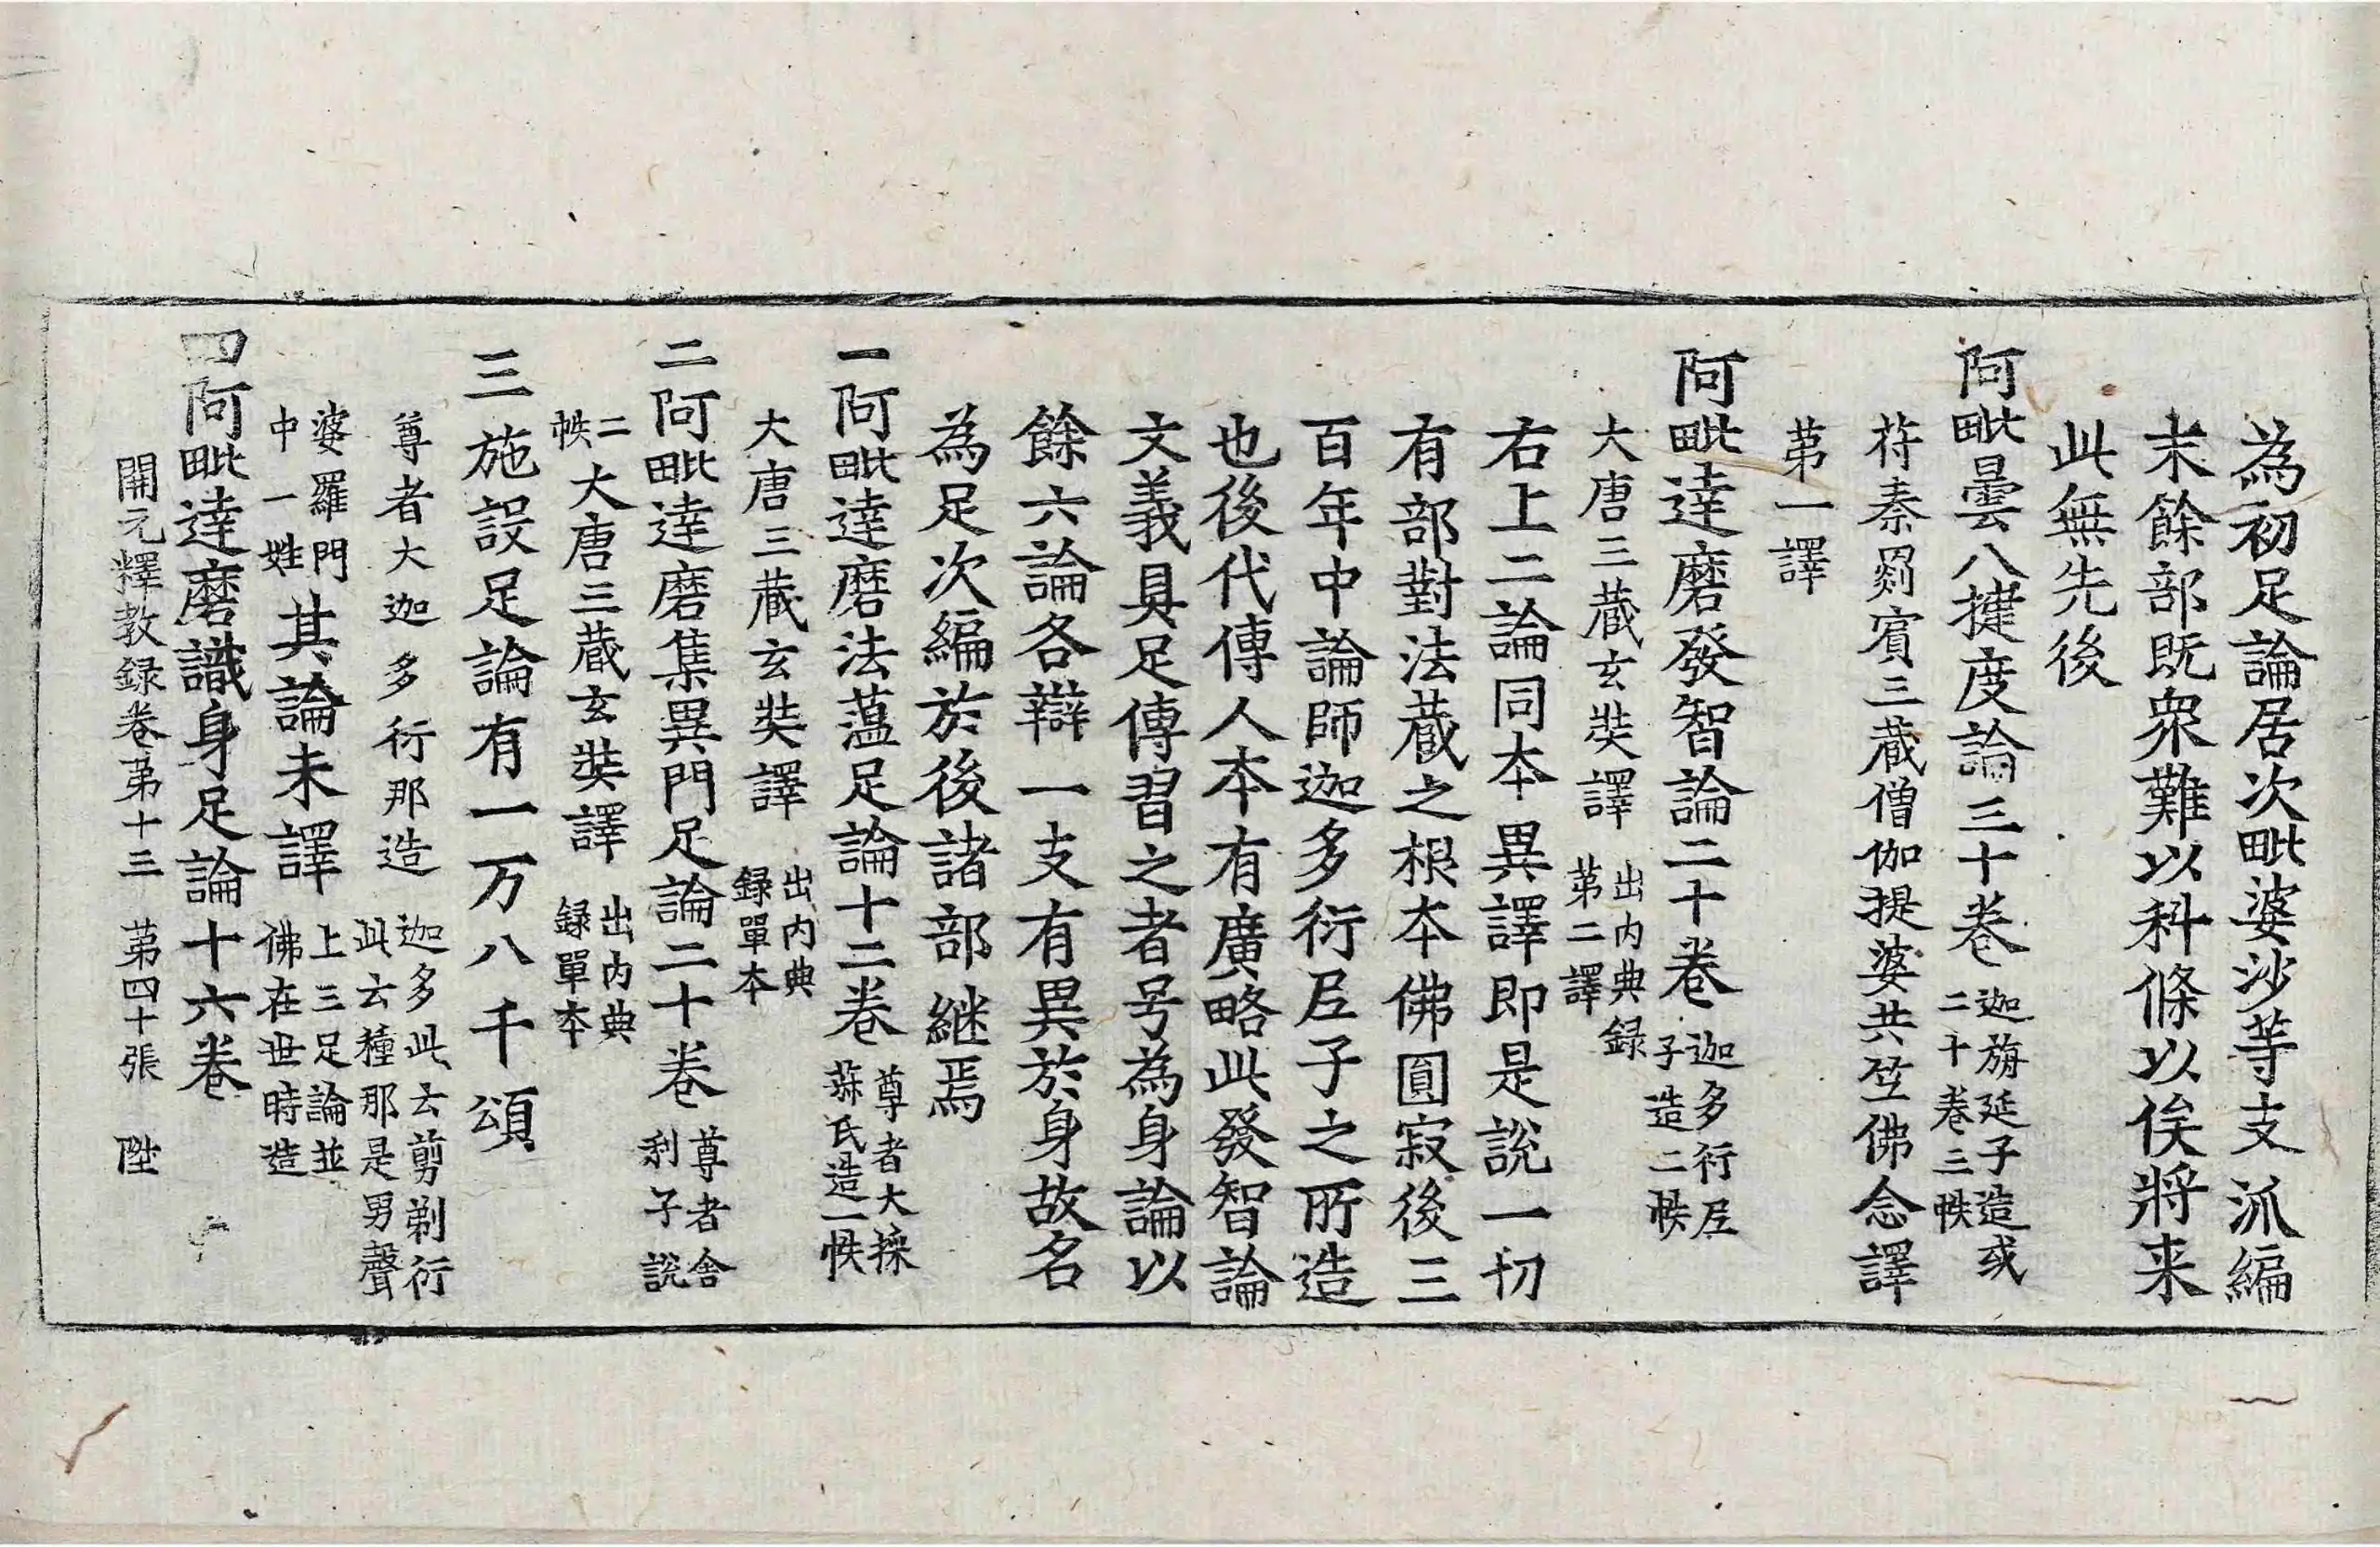 為初足論居次毗婆沙等支派編
末餘部既衆難以科條以俟將来
此無先後
阿毗曇八揵度論三十卷迦旃延子造或二十卷三帙
苻秦罽賓三蔵僧伽提婆共竺佛念譯
苐一譯
阿毗達磨發智論二十卷迦多衍尼子造二帙
大唐三蔵玄奘譯出内典録苐二譯
右上二論同本異譯即是說一切
有部對法蔵之根本佛圓寂後三
百年中論師迦多衍尼子之所造
也後代傳人本有廣略此發智論
文義具足傳習之者号為身論以
餘六論各辯一支有異於身故名
為足次編於後諸部継焉
一阿毗達磨法蕰足論十二卷尊者大採菽氏造一帙
大唐三蔵玄奘譯出内典録單本
二阿毗達磨集異門足論二十卷尊者舍利子說
二帙大唐三蔵玄奘譯出内典録單本
三施設足論有一万八千頌
尊者大迦多衍那造迦多此云剪剃衍此云種那是男聲
婆羅門中一姓其論未譯上三足論並佛在世時造
四阿毗達磨識身足論十六卷
開元釋教録卷苐十三 苐四十張 陞